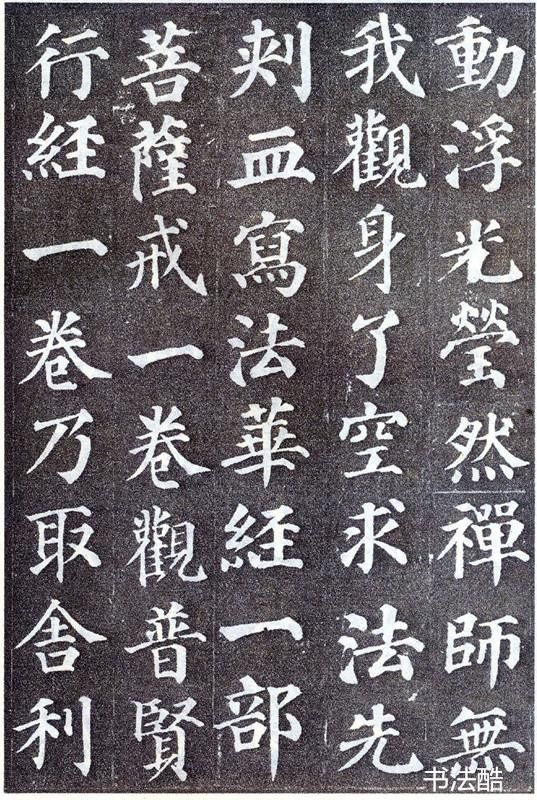 動浮光瑩然禪師無
我觀身了空求法先
刾血寫法華経一部
菩薩戒一卷觀普賢
行経一卷乃取舎利
书法酷